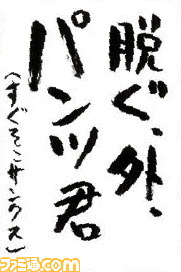 脱ぐ、外、
パンツ君
(すぐそこサンクス)
ファミ通.com